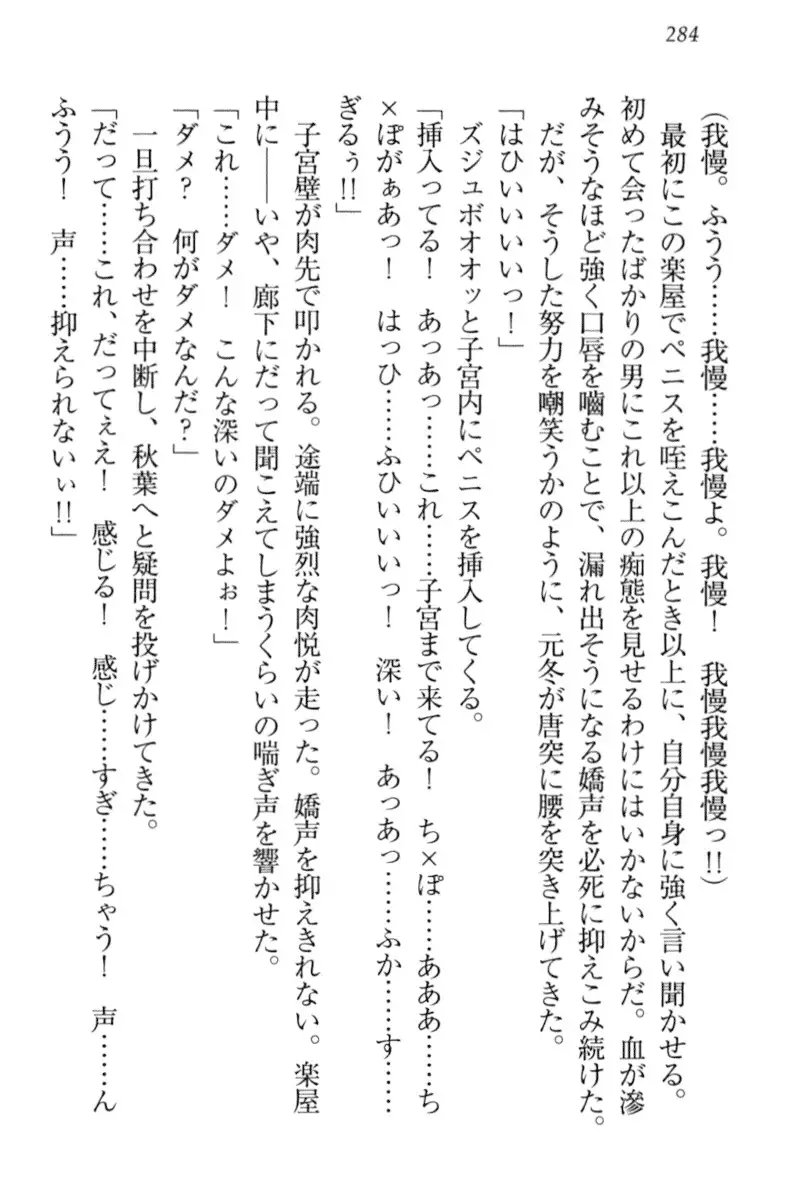 284
(我慢。ふうう……我慢……我慢よ。我慢！　我慢我慢我慢っ!!)
　最初にこの楽屋でペニスを咥えこんだとき以上に、自分自身に強く言い聞かせる。
初めて会ったばかりの男にこれ以上の痴態を見せるわけにはいかないからだ。血が滲
みそうなほど強く口唇を噛むことで、漏れ出そうになる嬌声を必死に抑えこみ続けた。
　だが、そうした努力を嘲笑うかのように、元冬が唐突に腰を突き上げてきた。
「はひいいいいっ！」
　ズジュボオオッと子宮内にペニスを挿入してくる。
「挿入ってる！　あっあっ……これ……子宮まで来てる！　ち×ぽ……あああ……ち
×ぽがぁあっ！　はっひ……ふひいいいっ！　深い！　あっあっ……ふか……す……
ぎるぅ!!」
　子宮壁が肉先で叩かれる。途端に強烈な肉悦が走った。嬌声を抑えきれない。楽屋
中に――いや、廊下にだって聞こえてしまうくらいの喘ぎ声を響かせた。
「これ……ダメ！　こんな深いのダメよぉ！」
「ダメ？　何がダメなんだ？」
　一旦打ち合わせを中断し、秋葉へと疑問を投げかけてきた。
「だって……これ、だってぇえ！　感じる！　感じ……すぎ……ちゃう！　声……ん
ふうう！　声……抑えられないぃ!!」